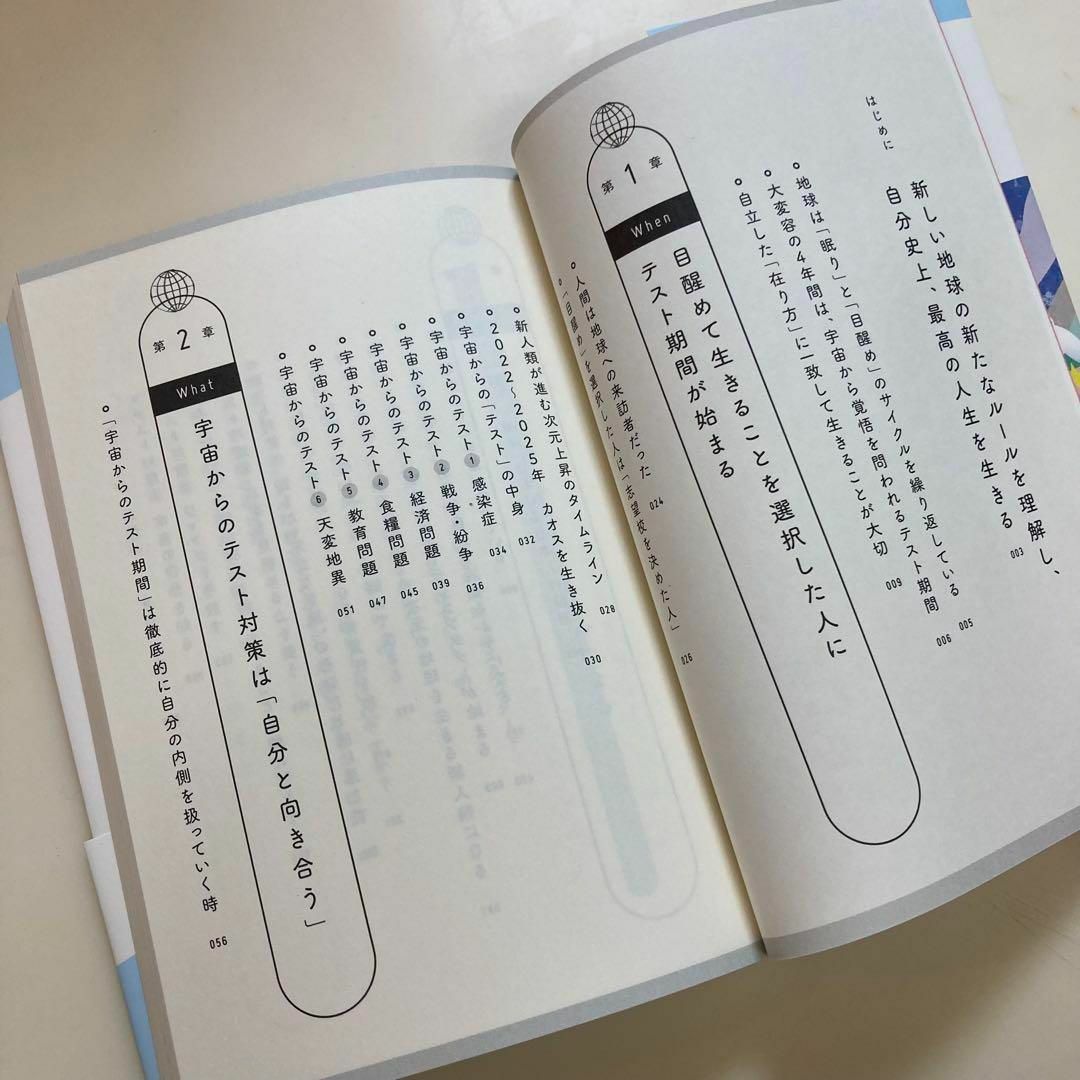 はじめに
新しい地球の新たなルールを理解し、
自分史上、最高の人生を生きる 003
地球は「眠り」と「目醒め」のサイクルを繰り返している 005
大変容の4年間は、宇宙から覚悟を問われるテスト期間 006
自立した「在り方」に一致して生きることが大切 009
第1章
When
目醒めて生きることを選択した人に
テスト期間が始まる
人間は地球への来訪者だった 024
「目醒め」を選択した人は「志望校を決めた人」 026
新人類が進む次元上昇のタイムライン 028
2022〜2025年 カオスを生き抜く 030
宇宙からの「テスト」の中身 032
宇宙からのテスト① 感染症 034
宇宙からのテスト② 戦争・紛争 036
宇宙からのテスト③ 経済問題 039
宇宙からのテスト④ 食糧問題 045
宇宙からのテスト⑤ 教育問題 047
宇宙からのテスト⑥ 天変地異 051
第2章
What
宇宙からのテスト対策は「自分と向き合う」
「宇宙からのテスト期間」は徹底的に自分の内側を扱っていく時 056